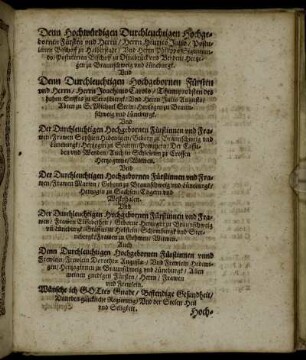 Denn Hochwürdigen Durchleuchtigen Hochge-
bornen Fürsten und Herrn / Herrn Heinrico Julio / Postu-
lirten Bischoff zu Halberstadt / Und Herrn Philippo Sigismun-
do / Postulirten Bischoff zu Osnabrück und Verden / Hertzo-
gen zu Braunschweig und Lüneburgk.
Und
Denn Durchleuchtigen Hochgebornen Fürsten
und Herrn / Herrn Joachimo Carolo / Thumprobsten des
hohen Stiffts zu / Und Herrn Julio Augusto /
Abten zu S. Michael Stein / Hertzogen zu Braun-
schweig und Lüneburgk.
Und
Der Durchleuchtigen Hochgebornen Fürstinnen und Fra-
wen / Frawen Sophien Hedewigen / Geborn zu Braunschweig und
Lüneburgk / Hertzogin zu Stettin / Pommern / Der Cassu-
ben und Wenden /
Und
Der Durchleuchtigen Hochgebornen Fürstinnen und Fra-
wen / Frawen Marien / Geborn zu Braunschweig und Lüneburgk /
Hertzogin zu Sachsen / Engern und
Westphalen.
Und
Der Durchleuchtigen Hochgebornen Fürstinnen und Fra-
wen / Frawen Elisabethen / Geborne Hertzogin zu Braunschweig
und Lüneburgk / Gräffin zu Holstein / Schaumburgk und Stern-
Auch
Denn Durchleuchtigen Hochgebornen Fürstinnen und
Frewlein / Frewlein Dorothea Augusta / Und Frewlein Hedewi-
gen / Hertzoginnen zu Braunschweig und Lüneburgk / Allen
meinen gnedigen Fürsten / Herrn / Frawen
und Frewlein.
Wünsche ich GOttes Gnade / Bestendige Gesundheit /
Und der Seelen Heil
und Seligkeit.
Hoch-